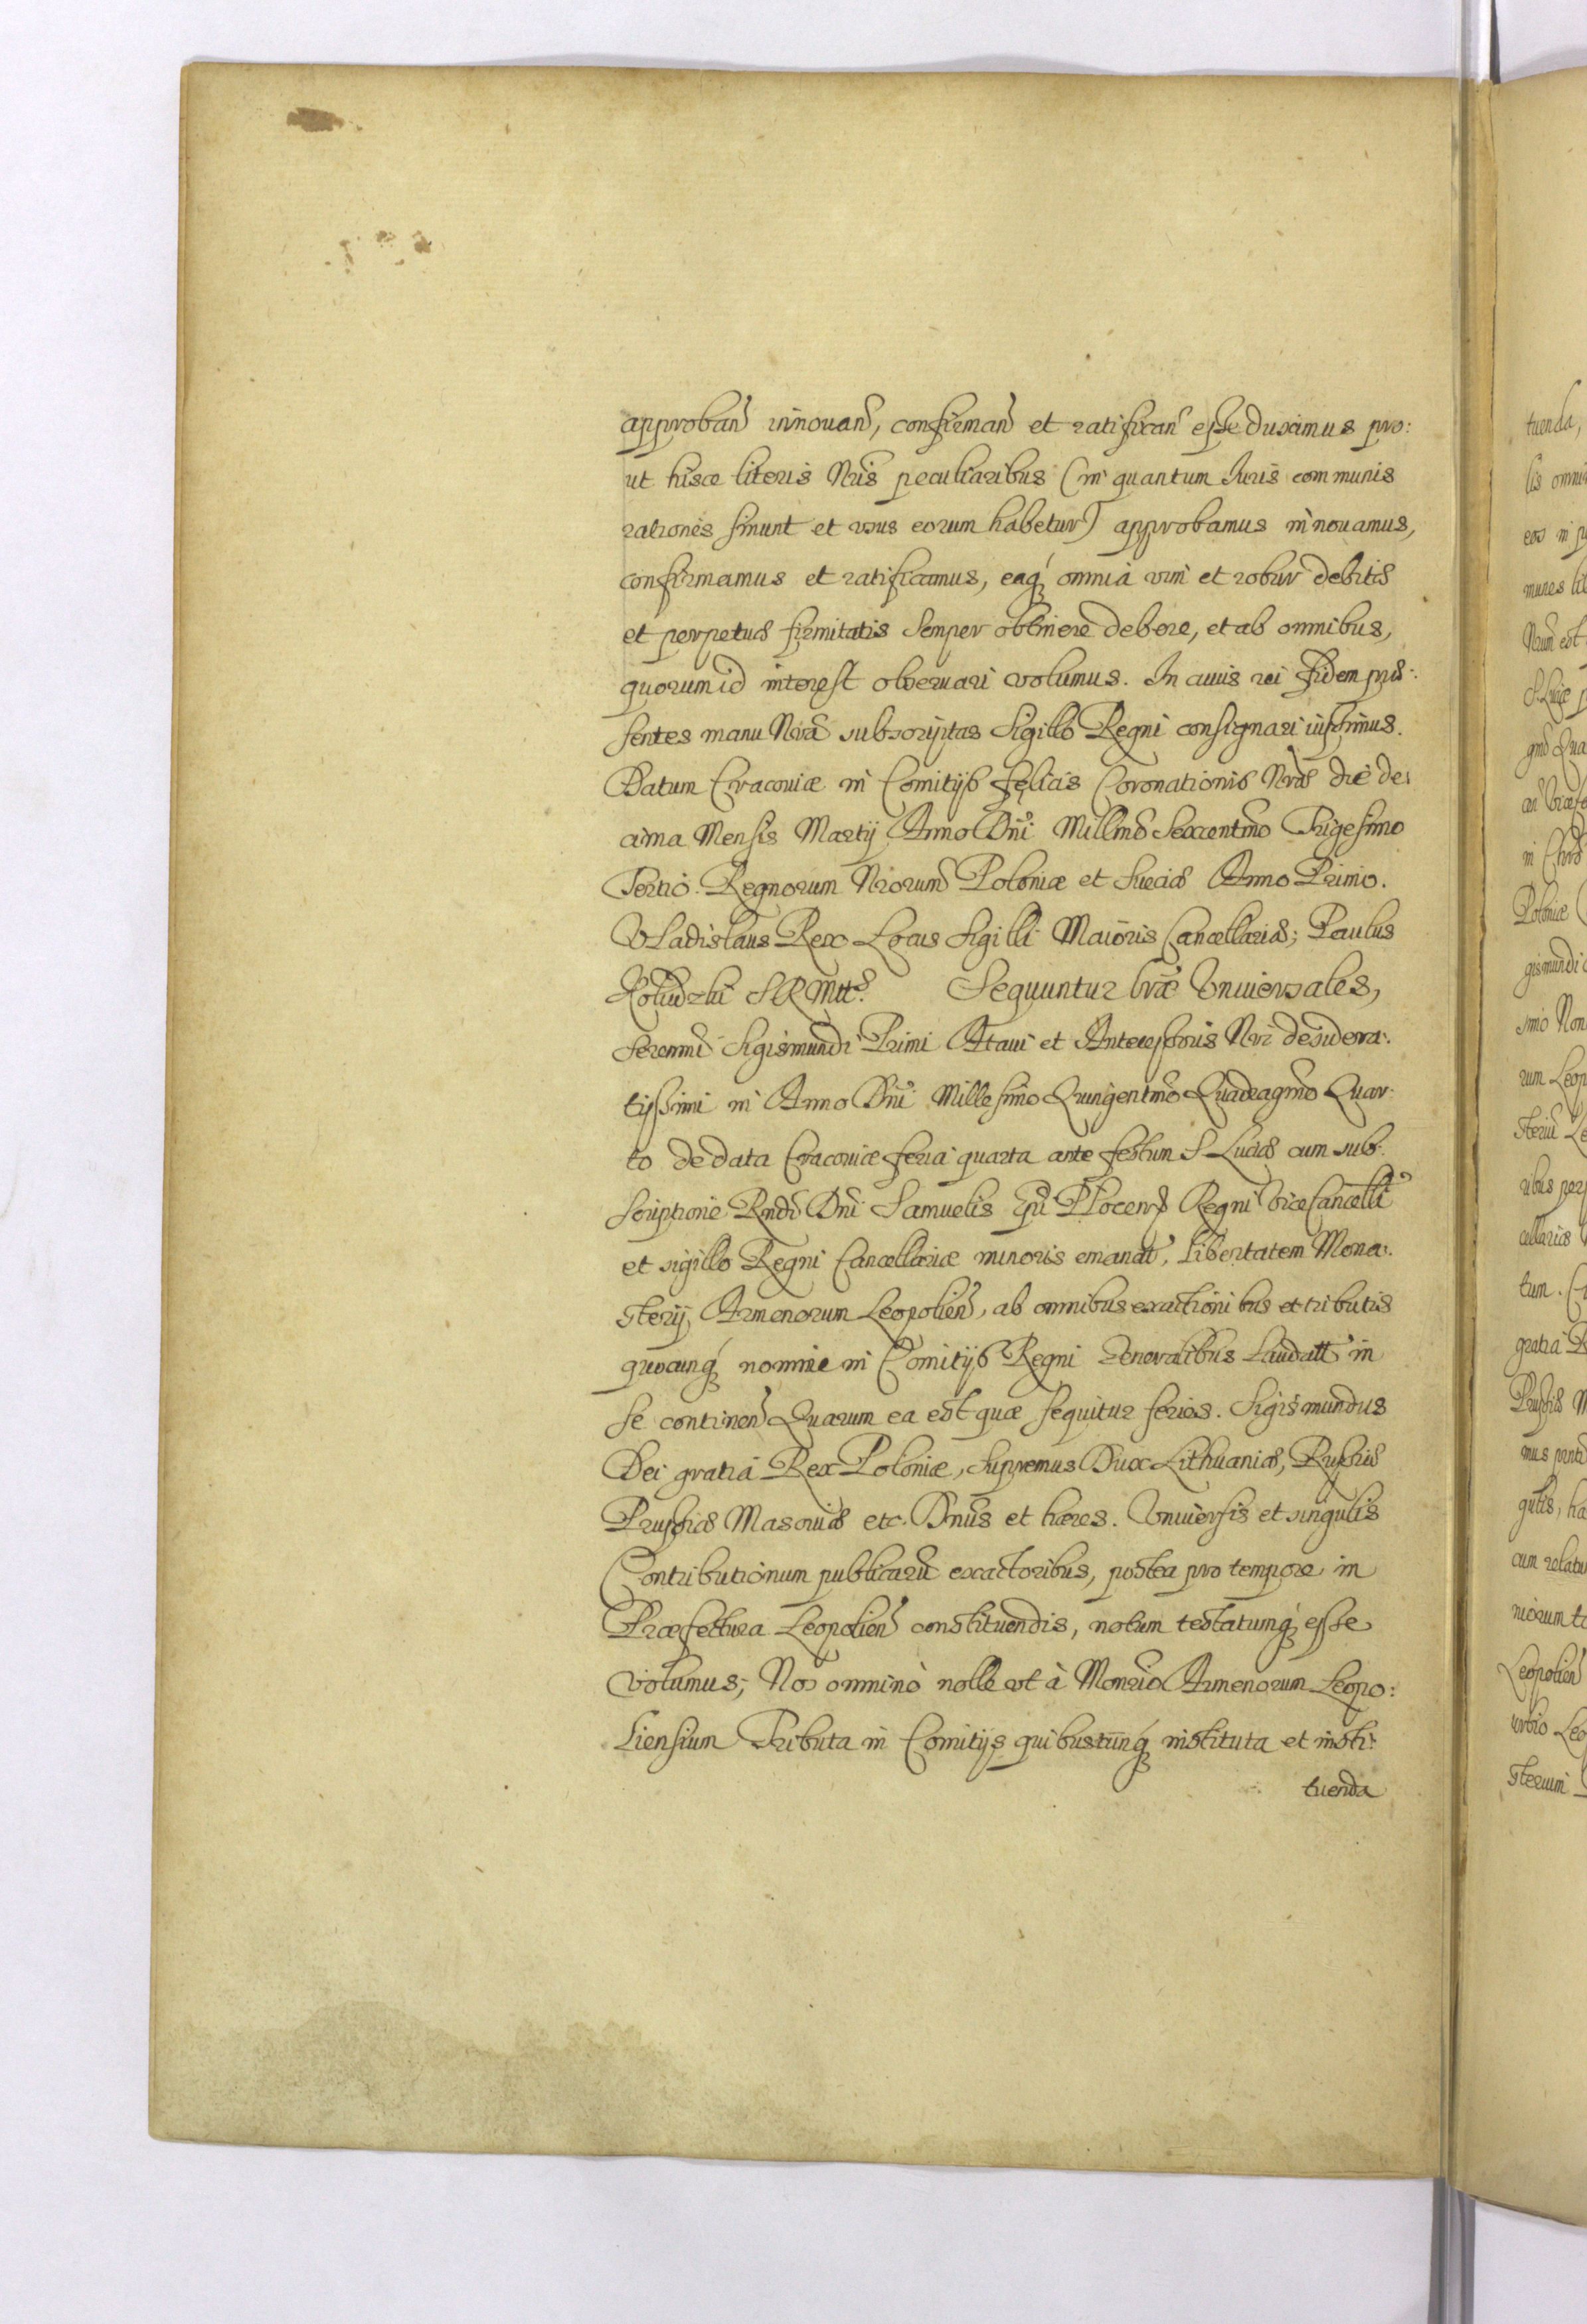 approban̄ innouan̄, confirman̄ et ratifican̄ esse duximus pro:
ut hisce literis Nris̄ peculiaribus (in quantum Iuris communis
rationes sinunt et usus eorum habetur) approbamus innouamus,
confirmamus et ratificamus, eaq́; omnia vim et robur debitæ
et perpetuæ firmitatis semper obtinere debere, et ab omnibus,
quorum id interest observari volumus. In cuius rei fidem præ:
sentes manu Nrā subscriptas Sigillo Regni consignari iussimus.
Datum Cracoviæ in Comitijs felicis Coronationis Nrǣ die de:
cima Mensis Martij Anno Dn̄i Millmō Sexcentmō Trigesimo
Tertio. Regnorum Nrorum̄ Poloniæ et Sueciæ Anno Primo.
Vladislaus Rex Locus Sigilli Maioris Cancellariæ; Paulus
S R Mttis. Sequuntur lrǣ Vniuersales,
Serenmī Sigismundi Primi Ataui et Antecessoris Nri̅ desidera:
tissimi in Anno Dn̄i Millesimo Quingentmō Quadragmō Quar:
to de data Cracoviæ feria quarta ante festum S Luciæ cum sub:
scriptione Rndi̅ Dn̄i Samuelis Epi̅ Plocen̄ Regni ViceCancelli̅
et sigillo Regni Cancellariæ minoris emanat̄, Libertatem Mona:
sterij Armenorum Leopolien̄, ab omnibus exactionibus et tributis
quocunq́; nomine in Comitijs Regni Generalibus Laudatt̄ in
se continen̄ Quarum ea est quæ sequitur series. Sigismundus
Dei gratiā Rex Poloniæ, Supremus Dux Lithuaniæ, Russiæ
Prussiæ Masoviæ etc. Dnūs et hæres. Vniuersis et singulis
Contributionum publicarū exactoribus, postea pro tempore in
Præfectura Leopolien̄ constituendis, notum testatumq́; esse
volumus; Nos omninò nolle ut à Monrio Armenorum Leopo:
liensium Tributa in Comitijs quibuscunq́; instituta et insti:
tuenda